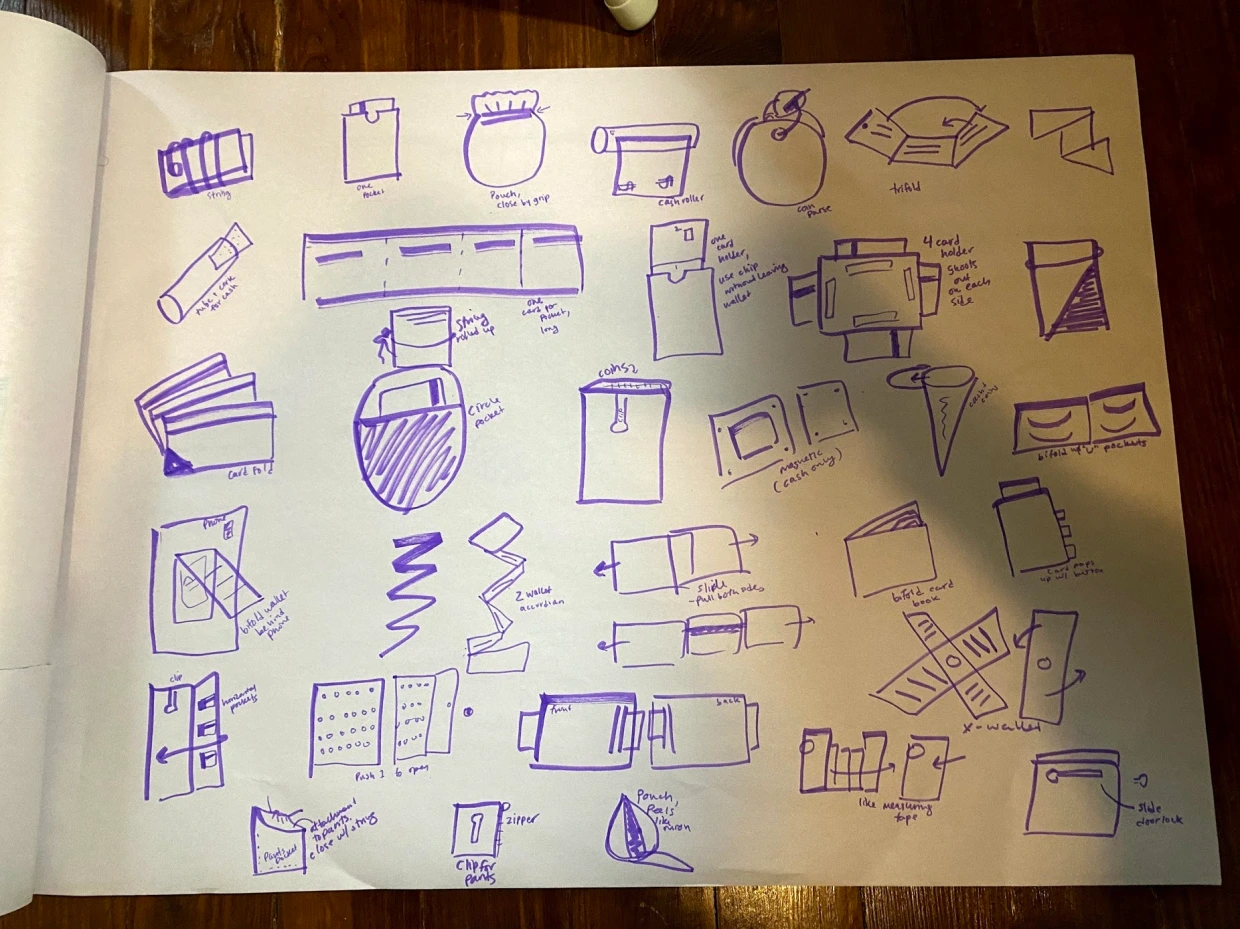 string
one
pocket
Pouch,
close by grip
cash roller
coin
purse
trifold
for cash
one
card per
pocket,
long
one
card
holder,
use chip
without leaving
wallet
4 card
holder
shoots
out
on each
side
string
rolled up
card fold
Circle
pocket
coins?
clip
magnetic
(cash only)
bifold w/ "u" pockets
Phone
bifold wallet
behind
phone
Z wallet
accordian
slide
-pull both sides
bifold card
book
card pops
up w/ button
clip
horizontal
pockets
Push 1 to open
front
back
X-wallet
like measuring
tape
slide
door lock
attachment
to pants.
close w/ string
zipper
clip for
pants
Pouch,